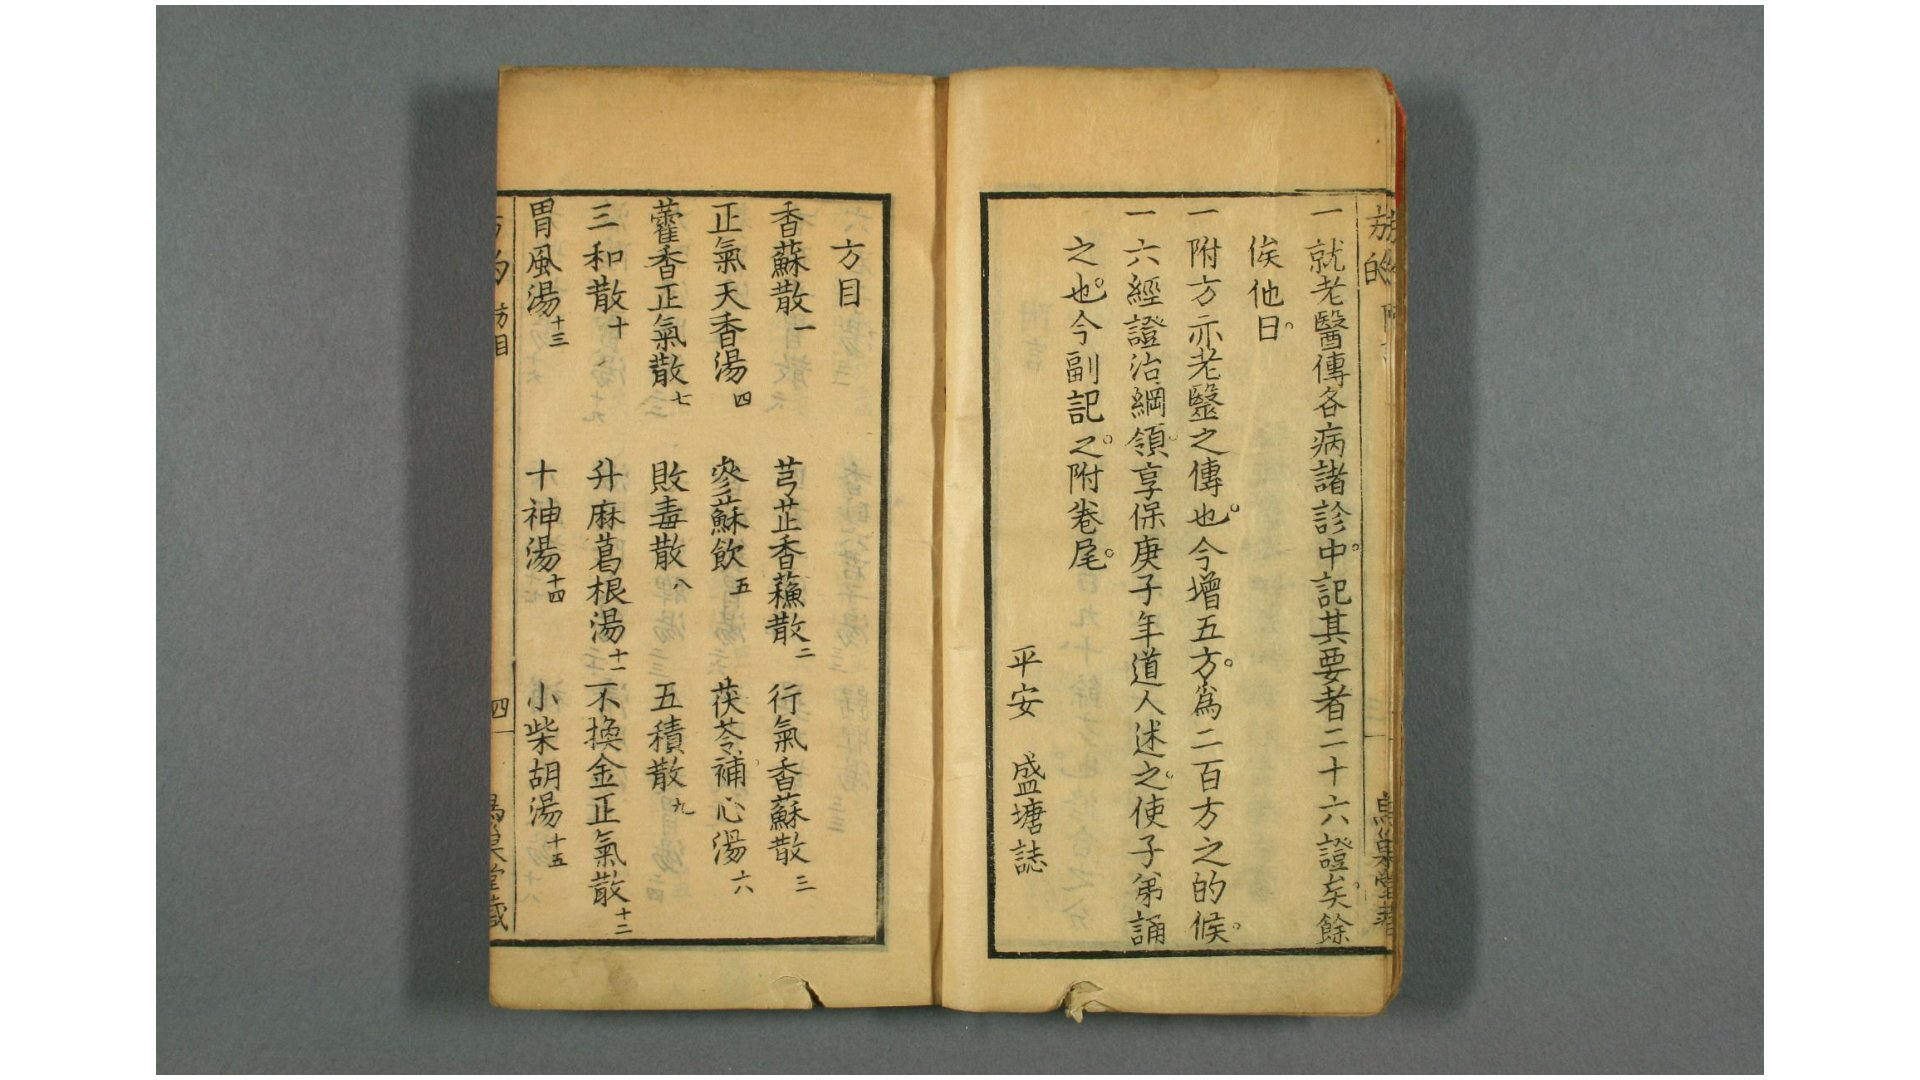 一就老醫傳各病諸診中。記其要者二十六證矣。餘
俟他日。
一附方亦老醫之傳也。今增五方。爲二百方之的候。
一六經證治綱領。享保庚子年道人述之。使子弟誦
之也。今副記之。附卷尾。
平安 盛塘誌
方目
香蘇散一 芎芷香蘓散二 行氣香蘇散三
正氣天香湯四 參蘇飲五 茯苓補心湯六
藿香正氣散七 敗毒散八 五積散九
三和散十 升麻葛根湯十一 不換金正氣散十二
胃風湯十三 十神湯十四 小柴胡湯十五
方目
四